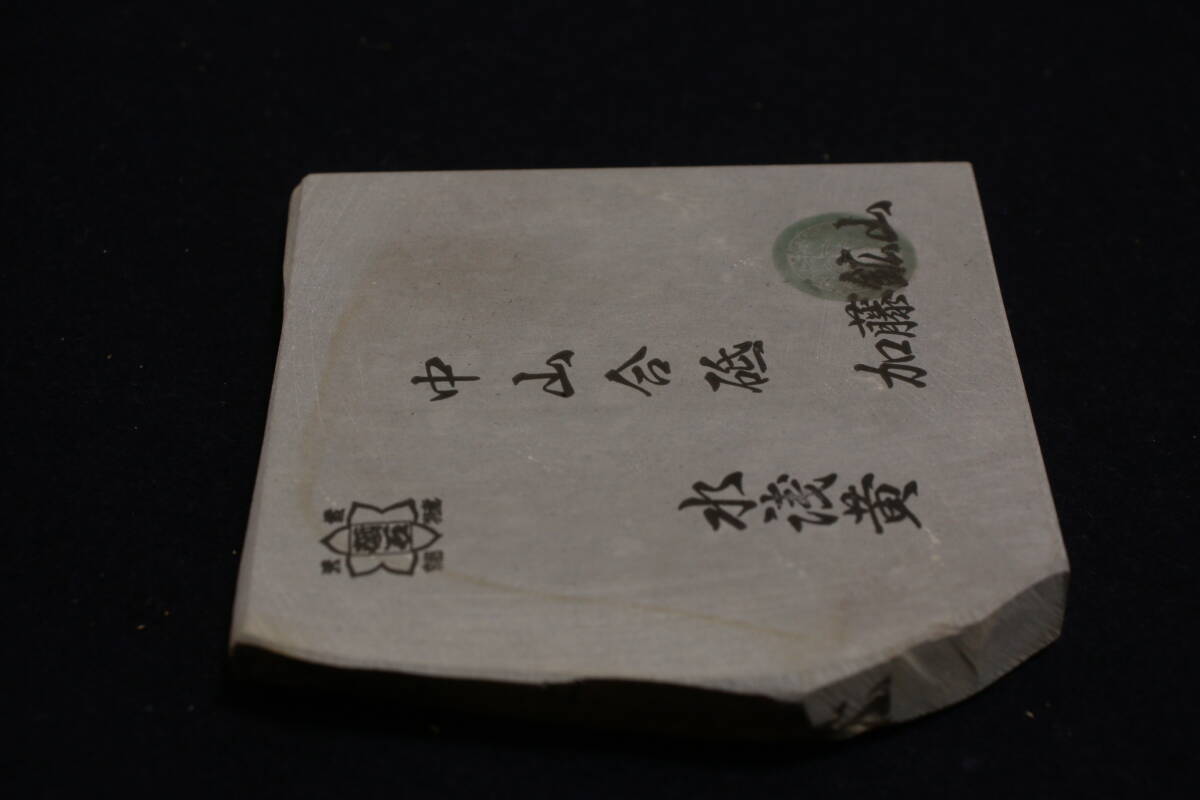 加藤鉱山
中山合砥
水浅黄